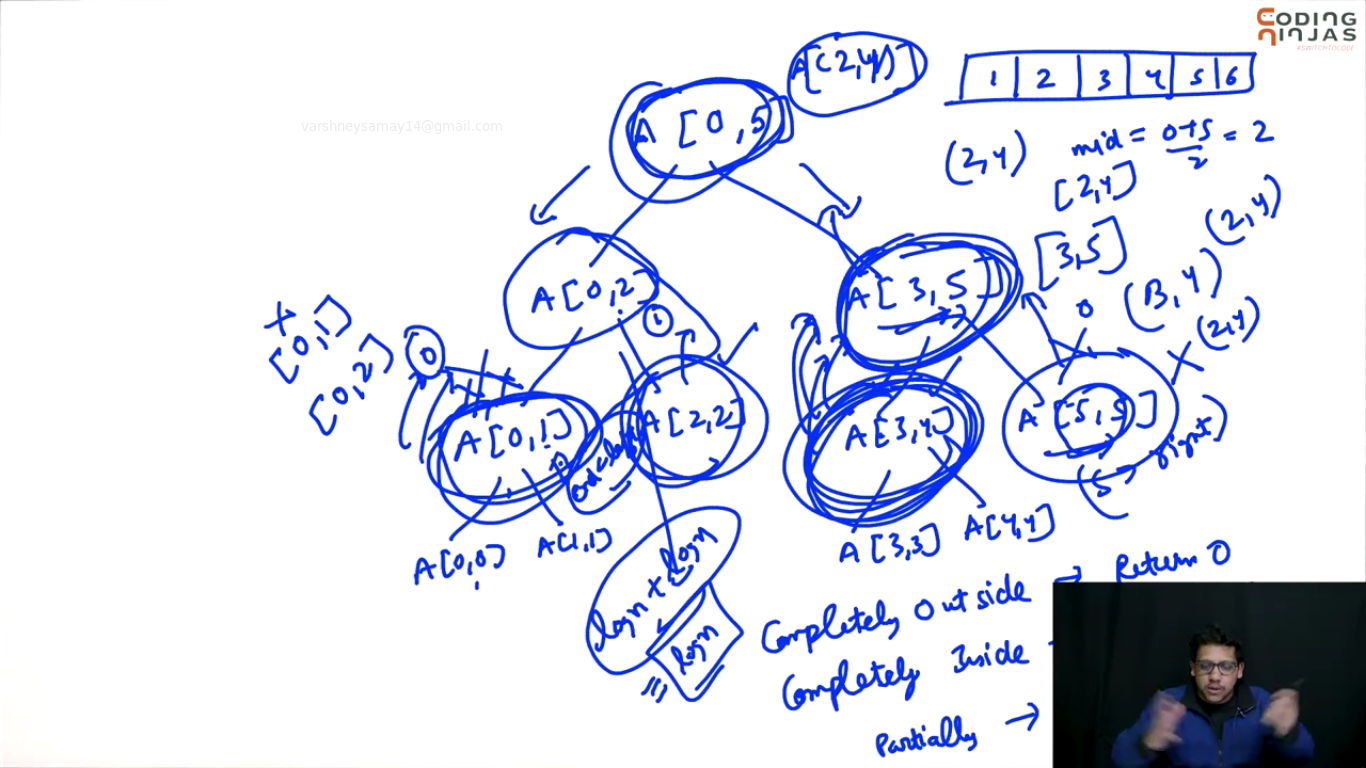 CODING
NINJAS
#SWITCHTOCODE
varshneysamay14@gmail.com
A[(2,4)]
1 2 3 4 5 6
A [0,5]
(2,4) mid = 0+5/2 = 2
[2,4]
(2,4)
A[0,2]
A[3,5]
[3,5]
(3,4)
(2,4)
1
0
x
[0,1]
[0,2]
0
A[0,1]
A[2,2]
A[3,4]
A[5,5]
(5 → right)
A[0,0]
A[1,1]
A[3,3]
A[4,4]
logn + logn
logn
Completely Outside → Return 0
Completely Inside →
Partially →